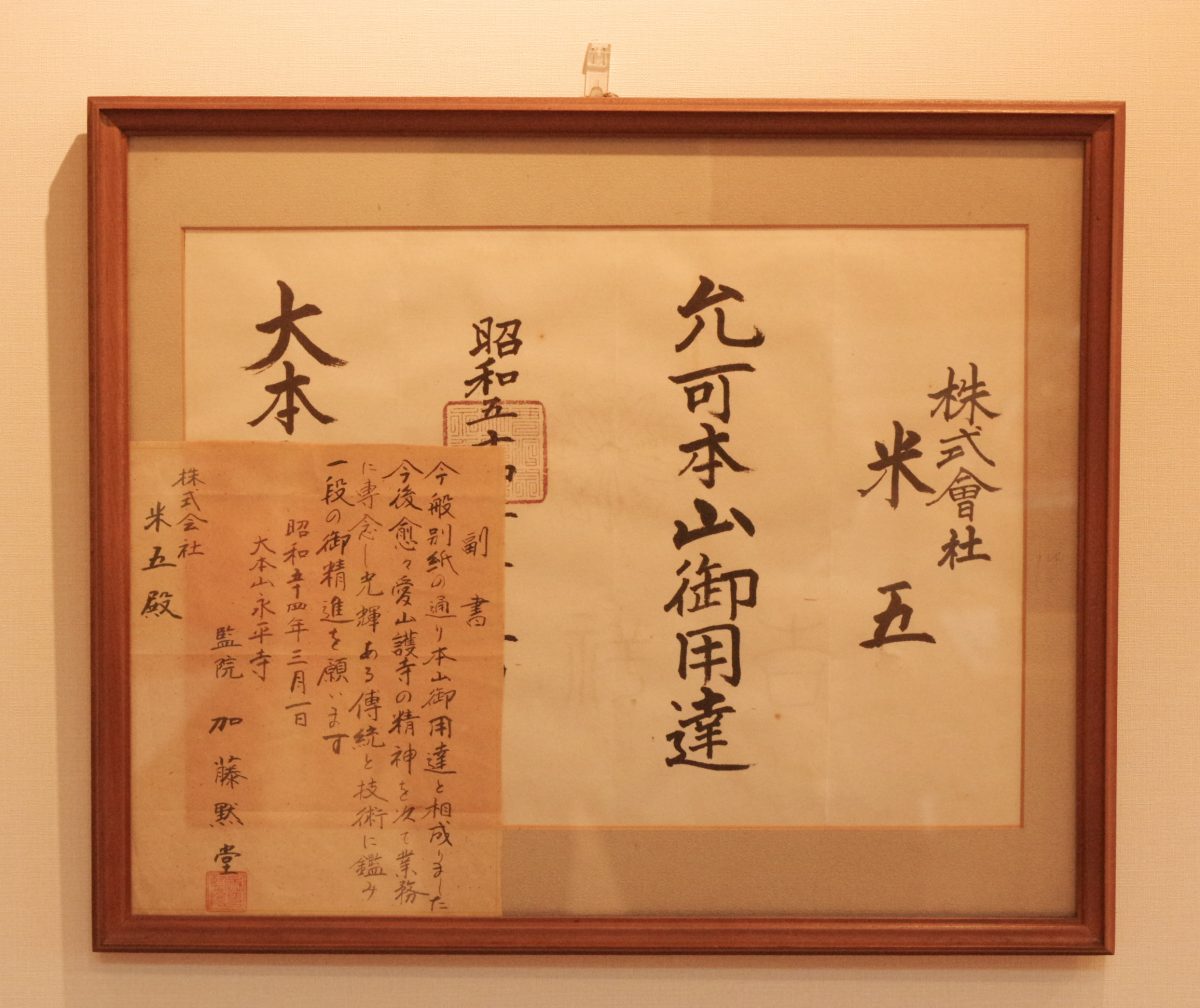 株式會社
米五
允可本山御用達
昭和五十四
大本
副書
今般別紙の通り本山御用達と相成りました
今後愈々愛山護寺の精神を次て業務
に専念し光輝ある傳統と技術に鑑み
一段の御精進を願います
昭和五十四年三月一日
大本山永平寺
監院 加藤黙堂
株式会社
米五殿